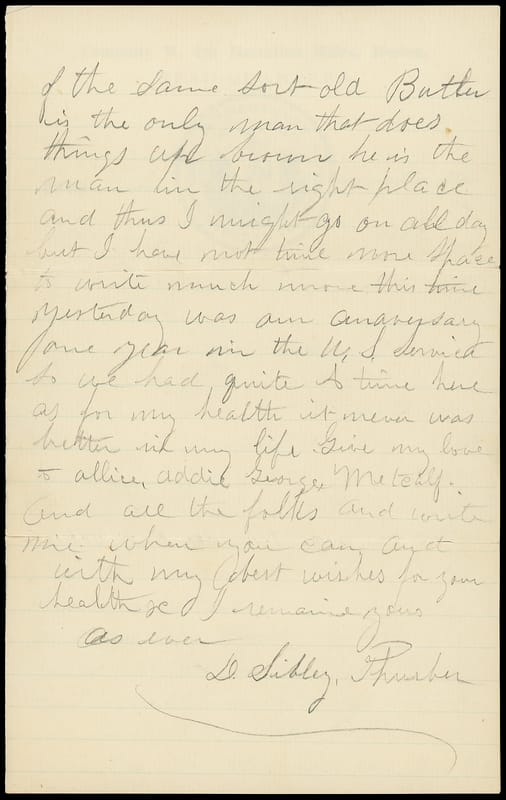 of the same sort old Butler
is the only man that does
things up brown he is the
man in the right place
and thus I might go on all day
but I have not time more space
to write much more this time
yesterday was our anaversary
one year in the U, S, Service
so we had quite a time here
as for my health it never was
better in my life Give my love
to allice, addie George, Metcalf.
And all the folks and write
me when you can, and
with my best wishes for your
health &c I remaine yours
as ever
D. Sibley, Thurber